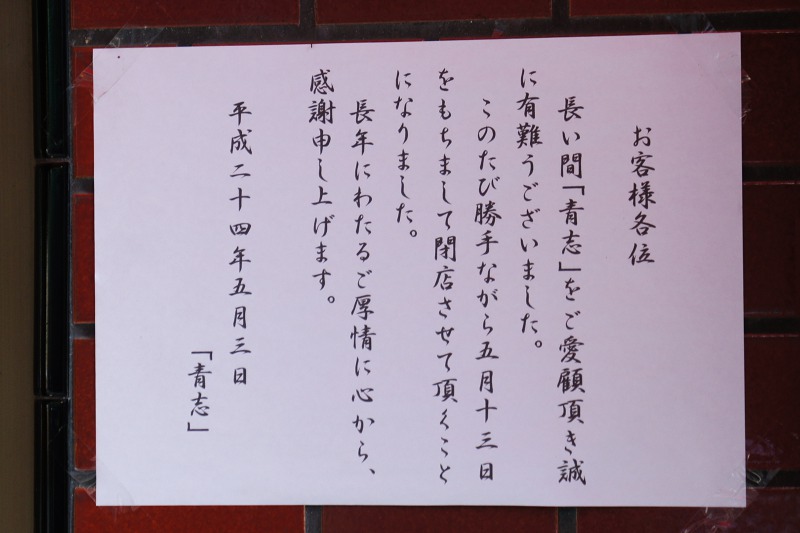 お客様各位
長い間「青志」をご愛顧頂き誠
に有難うございました。
このたび勝手ながら五月十三日
をもちまして閉店させて頂くこと
になりました。
長年にわたるご厚情に心から、
感謝申し上げます。
平成二十四年五月三日
「青志」